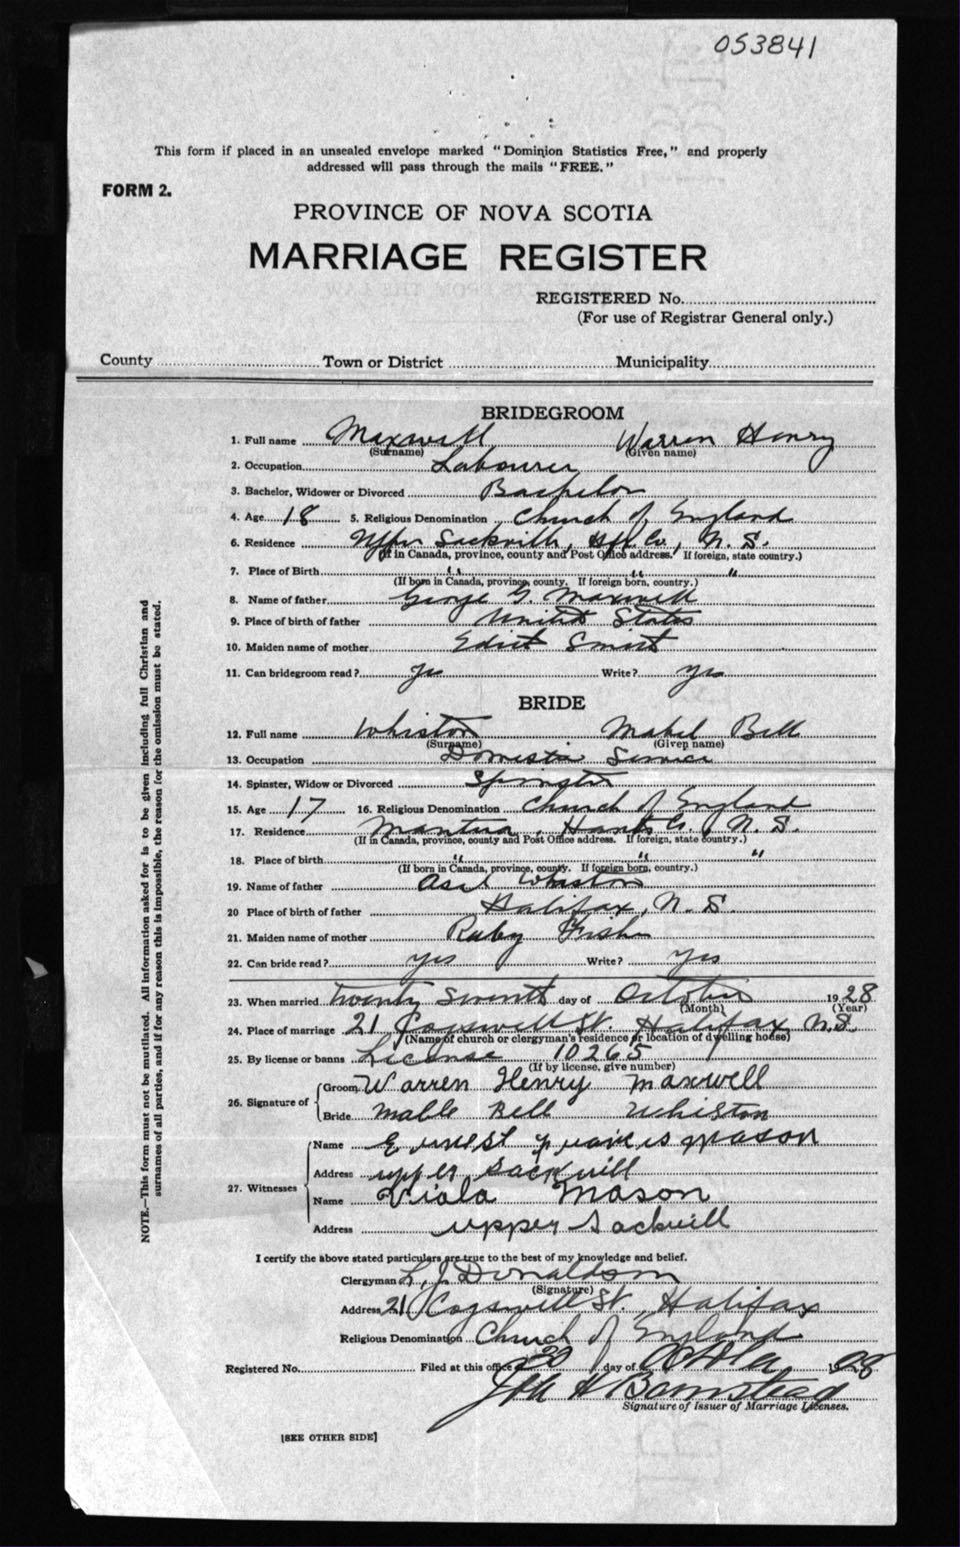 053841
This form if placed in an unsealed envelope marked "Dominion Statistics Free," and properly
addressed will pass through the mails "FREE."
FORM 2.
PROVINCE OF NOVA SCOTIA
MARRIAGE REGISTER
REGISTERED No.
(For use of Registrar General only.)
County Town or District Municipality
BRIDEGROOM
1. Full name Maxwell Warren Henry
(Surname) (Given name)
2. Occupation Labourer
3. Bachelor, Widower or Divorced Bachelor
4. Age 18 5. Religious Denomination Church of England
6. Residence Upper Sackville, Hfx. Co., N. S.
(If in Canada, province, county and Post Office address. If foreign, state country.)
7. Place of Birth " " "
(If born in Canada, province, county. If foreign born, country.)
8. Name of father George G. Maxwell
9. Place of birth of father United States
10. Maiden name of mother Smith
11. Can bridegroom read? yes Write? yes
BRIDE
12. Full name Whiston Mabel Bell
(Surname) (Given name)
13. Occupation Domestic Service
14. Spinster, Widow or Divorced Spinster
15. Age 17 16. Religious Denomination Church of England
17. Residence Mantua, Hants Co., N. S.
(If in Canada, province, county and Post Office address. If foreign, state country.)
18. Place of birth " " "
(If born in Canada, province, county. If foreign born, country.)
19. Name of father Whiston
20 Place of birth of father Halifax, N. S.
21. Maiden name of mother Ruby Fish
22. Can bride read? yes Write? yes
23. When married twenty seventh day of October 1928
(Month) (Year)
24. Place of marriage 21 Cogswell St. Halifax, N.S.
(Name of church or clergyman's residence or location of dwelling house)
25. By license or banns License 10265
(If by license, give number)
26. Signature of
Groom Warren Henry Maxwell
Bride Mable Bell Whiston
27. Witnesses
Name Ernest Mason
Address upper Sackvill
Name Viola Mason
Address upper Sackvill
I certify the above stated particulars are true to the best of my knowledge and belief.
Clergyman L. J. Donaldson
(Signature)
Address 21 Cogswell St. Halifax
Religious Denomination Church of England
Registered No. Filed at this office 30 day of 1928
Signature of Issuer of Marriage Licenses.
[SEE OTHER SIDE]
NOTE.—This form must not be mutilated. All information asked for is to be given including full Christian and
surnames of all parties, and if for any reason this is impossible, the reason for the omission must be stated.